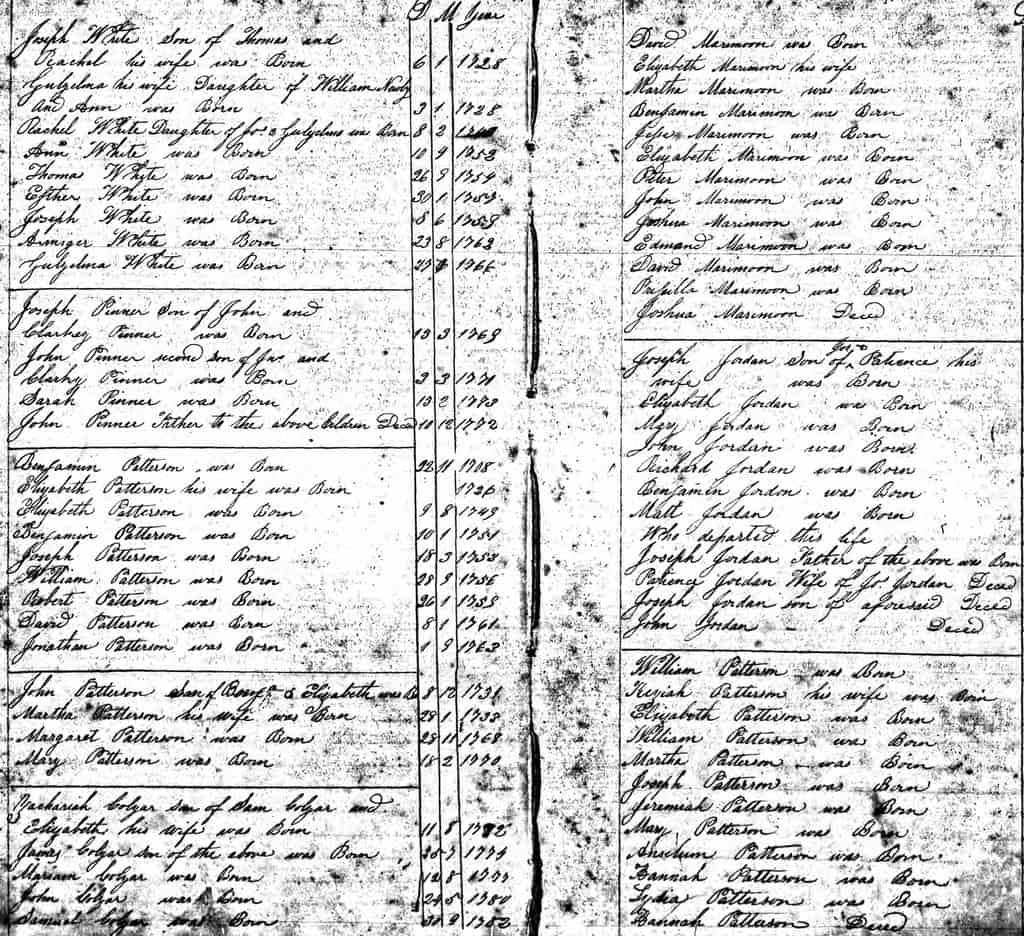 D M Year
Joseph White Son of Thomas and
Rachel his wife was Born 6 1 1728
Gulyelma his wife Daughter of William Newby
And Ann was Born 3 1 1728
Rachel White Daughter of Jos & Gulyelma was Born 8 2
Ann White was Born 10 9 1752
Thomas White was Born 26 9 1754
Esther White was Born 30 1
Joseph White was Born 8 6
White was Born 23 8 1763
Gulyelma White was Born 1766
Joseph Pinner Son of John and
Clarkey Pinner was Born 13 3 1769
John Pinner second son of Jno and
Clarky Pinner was Born 3 3 1771
Sarah Pinner was Born 13 2
John Pinner Father to the above Children Deced 10 12 1772
Benjamin Patterson was Born 22 11 1708
Elizabeth Patterson his wife was Born 1726
Elizabeth Patterson was Born 9 8 1749
Benjamin Patterson was Born 10 1 1751
Joseph Patterson was Born 18 3 1753
William Patterson was Born 28 9 1756
Robert Patterson was Born 26 1
David Patterson was Born 8 1 1761
Jonathan Patterson was Born 1 9 1763
John Patterson Son of & Elizabeth was 8 12
Martha Patterson his wife was Born 28 1
Margaret Patterson was Born 28 11 1768
Mary Patterson was Born 18 2 1770
Zachariah Colyar son of Sam Colyar and
Elizabeth his wife was Born 11 8
James Colyar son of the above was Born
Mariam Colyar was Born 12 8
John Colyar was Born 24 5 1780
Samuel Colyar was Born 9 1782
David Marimoon was Born
Elizabeth Marimoon his wife
Martha Marimoon was Born
Benjamin Marimoon was Born
Jesse Marimoon was Born
Elizabeth Marimoon was Born
Peter Marimoon was Born
John Marimoon was Born
Joshua Marimoon was Born
Edmand Marimoon was Born
David Marimoon was Born
Prisilla Marimoon was Born
Joshua Marimoon Deced
Joseph Jordan Son of Jos & Patience his
wife was Born
Elizabeth Jordan was Born
Mary Jordan was Born
John Jordan was Born
Richard Jordan was Born
Benjamin Jordon was Born
Matt Jordan was Born
Who departed this life
Joseph Jordan Father of the above was Born
Patience Jordan Wife of Jos Jordan Deced
Joseph Jordan son of aforesaid Deced
John Jordan Deced
William Patterson was Born
Keziah Patterson his wife was Born
Elizabeth Patterson was Born
William Patterson was Born
Martha Patterson was Born
Joseph Patterson was Born
Jeremiah Patterson was Born
Mary Patterson was Born
Anselum Patterson was Born
Hannah Patterson was Born
Lydia Patterson was Born
Hannah Patterson Deced